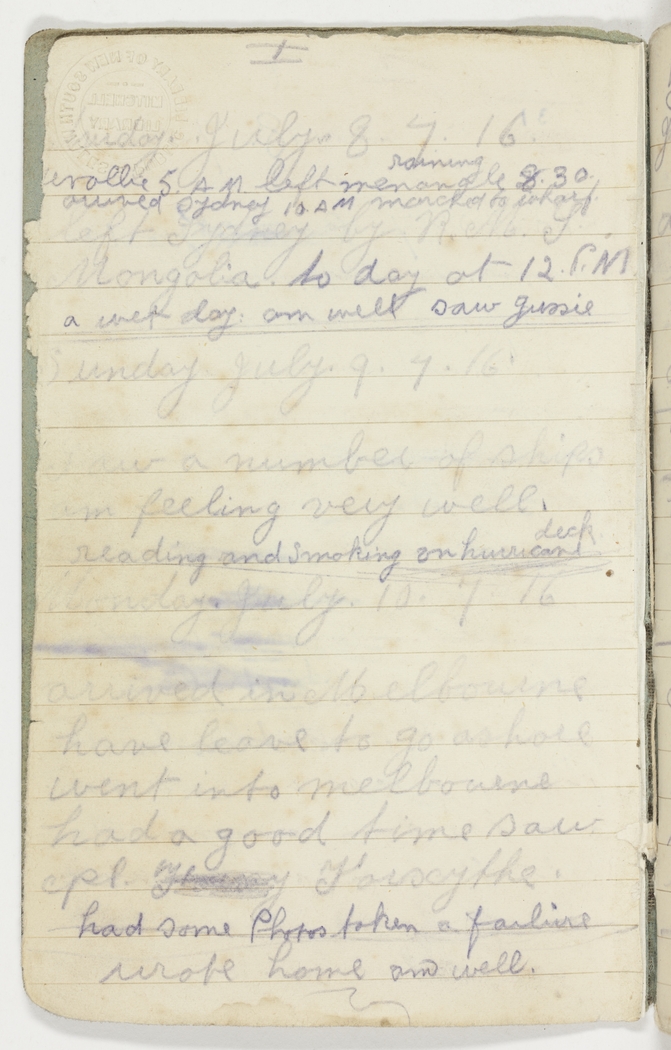 1
July. 8. 7. 16
raining
5 AM left menangle 8.30.
arrived Sydney 10 AM marched to wharf
left Sydney by R. M. S.
Mongolia. to day at 12. P.M
a wet day. am well saw Gussie
Sunday July. 9. 7. 16
saw a number of ships
am feeling very well.
deck
reading and smoking on hurricane
Monday. July. 10. 7 16
arrived in Melbourne
have leave to go ashore
went into melbourne
had a good time saw
cpl. Forsythe.
had some Photos taken a failure
wrote home am well.